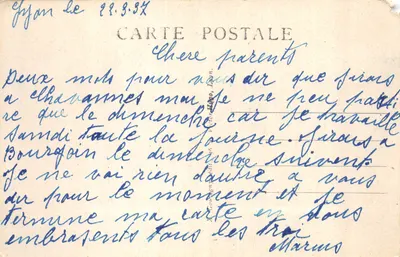 Lyon le 22.9.37
CARTE POSTALE
Chere parents
Deux mots pour vous dir que j'irais
a Chavannes mai je ne peu parti
re que le dimenche car je travaille
Samdi toute la journe. j'irais a
Bourgoin le dimenche suivent
Je ne voi rien dautre a vous
dir pour le moment et je
termine ma carte en vous
embrasents tous les troi
Marius